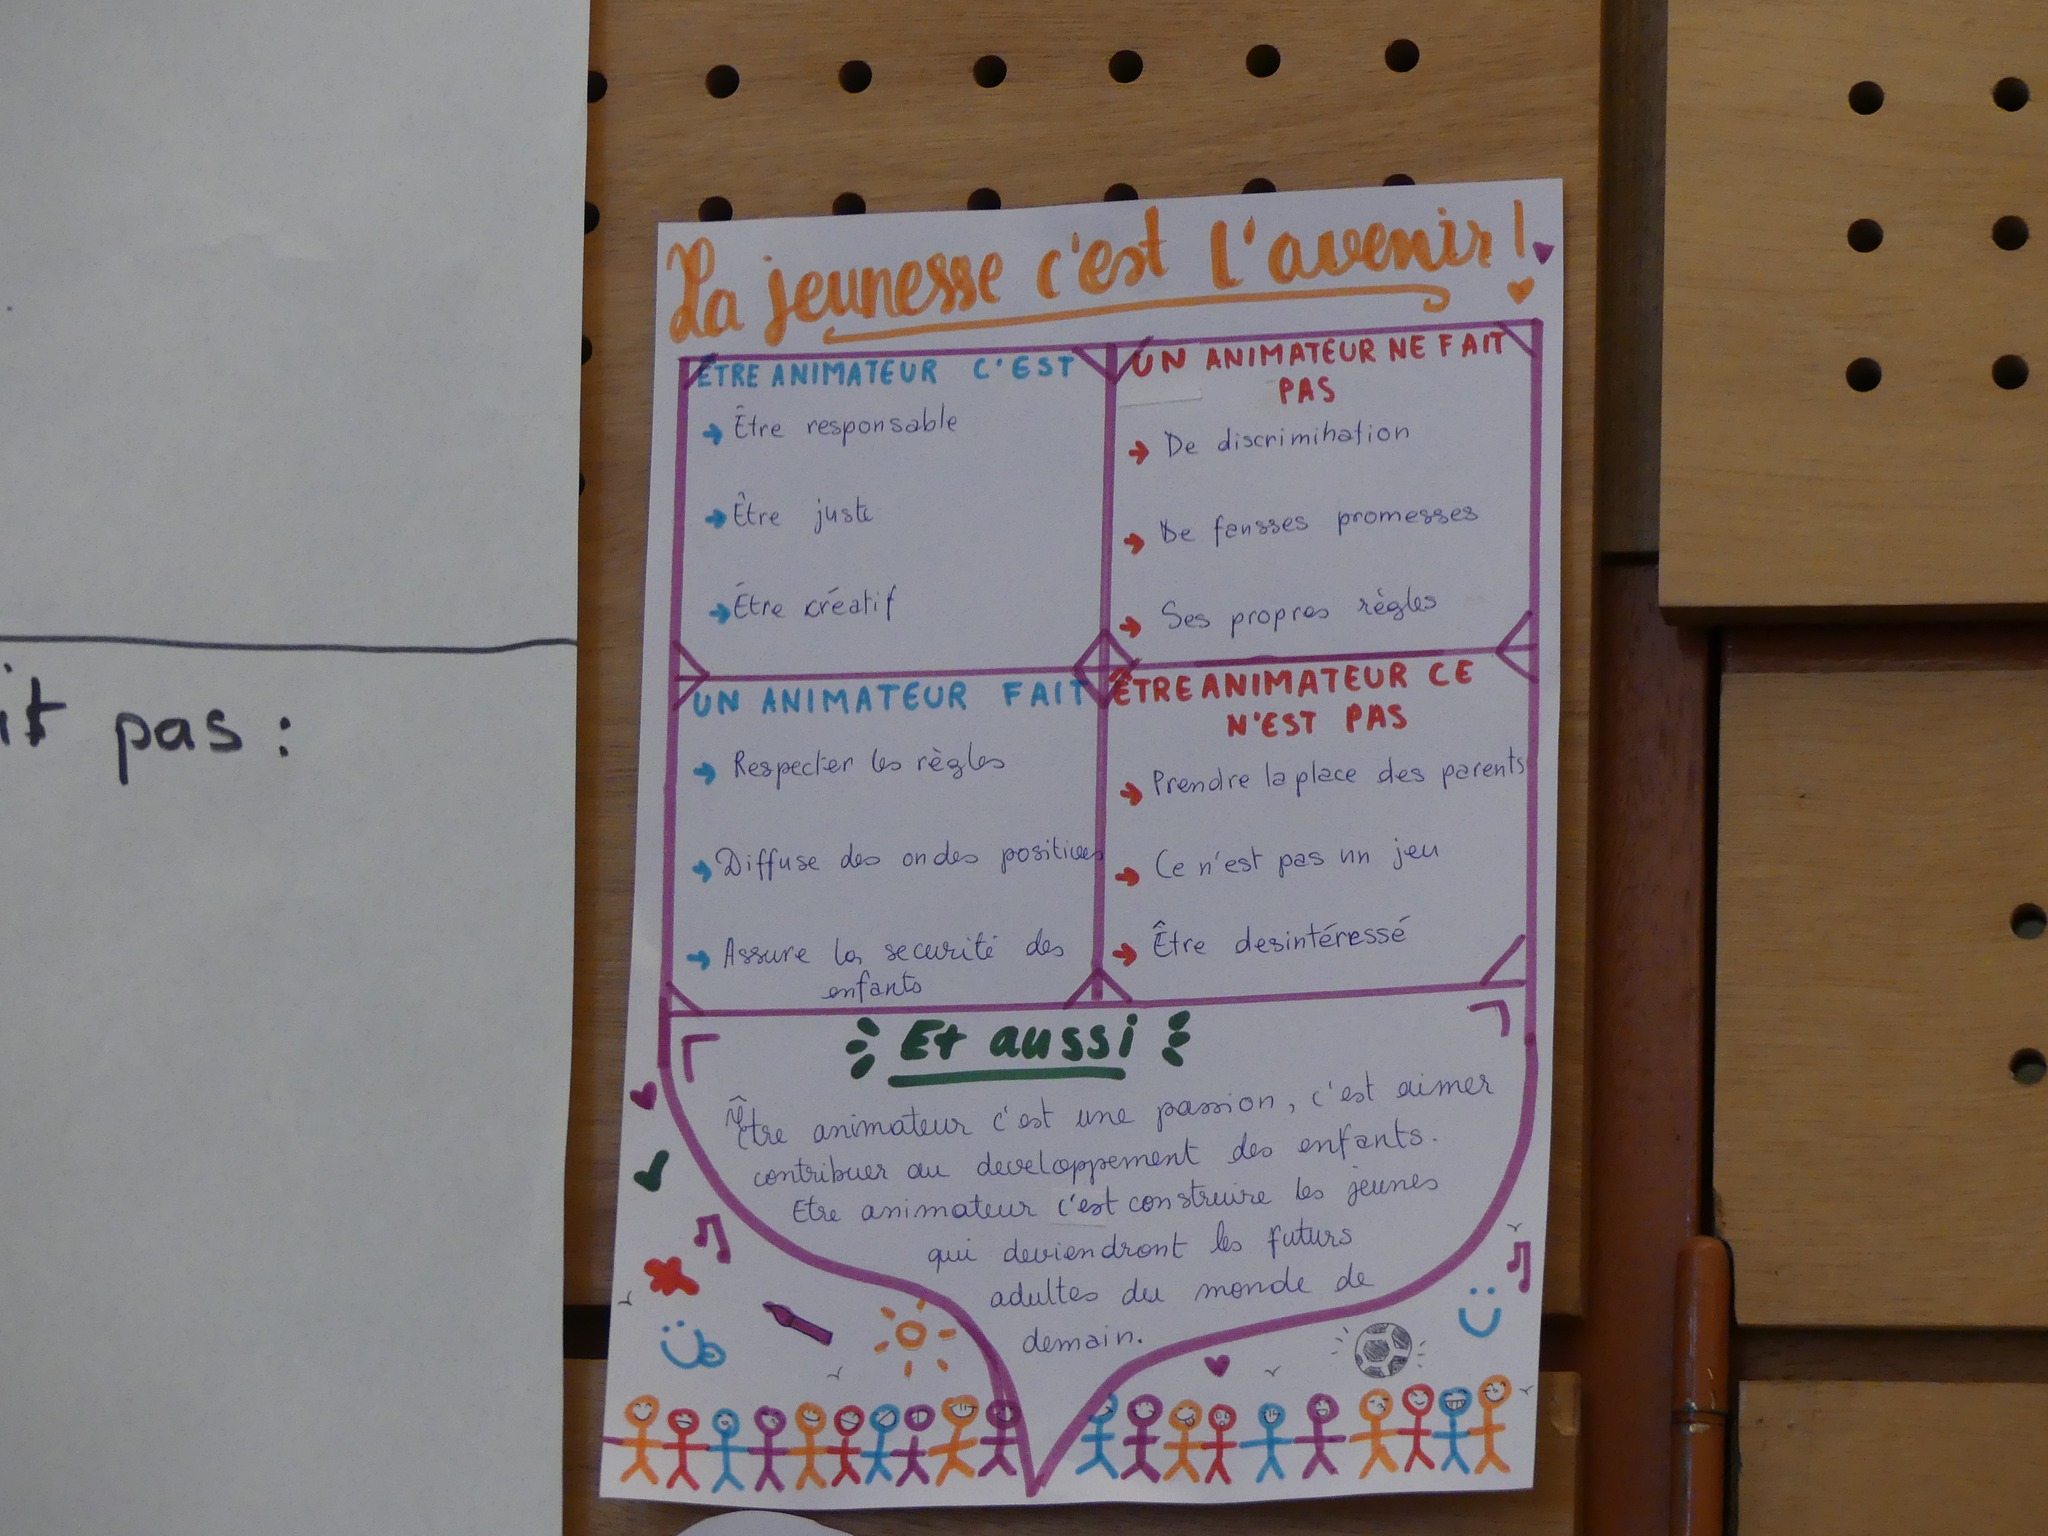 La jeunesse c'est l'avenir !
ÊTRE ANIMATEUR C'EST
Être responsable
Être juste
Être créatif
UN ANIMATEUR NE FAIT
PAS
De discrimination
De fausses promesses
Ses propres règles
UN ANIMATEUR FAIT
Respecter les règles
Diffuse des ondes positives
Assure la securité des
enfants
ÊTRE ANIMATEUR CE
N'EST PAS
Prendre la place des parents
Ce n'est pas un jeu
Être desintéressé
Et aussi
Être animateur c'est une passion, c'est aimer
contribuer au developpement des enfants.
Etre animateur c'est construire les jeunes
qui deviendront les futurs
adultes du monde de
demain.
pas :